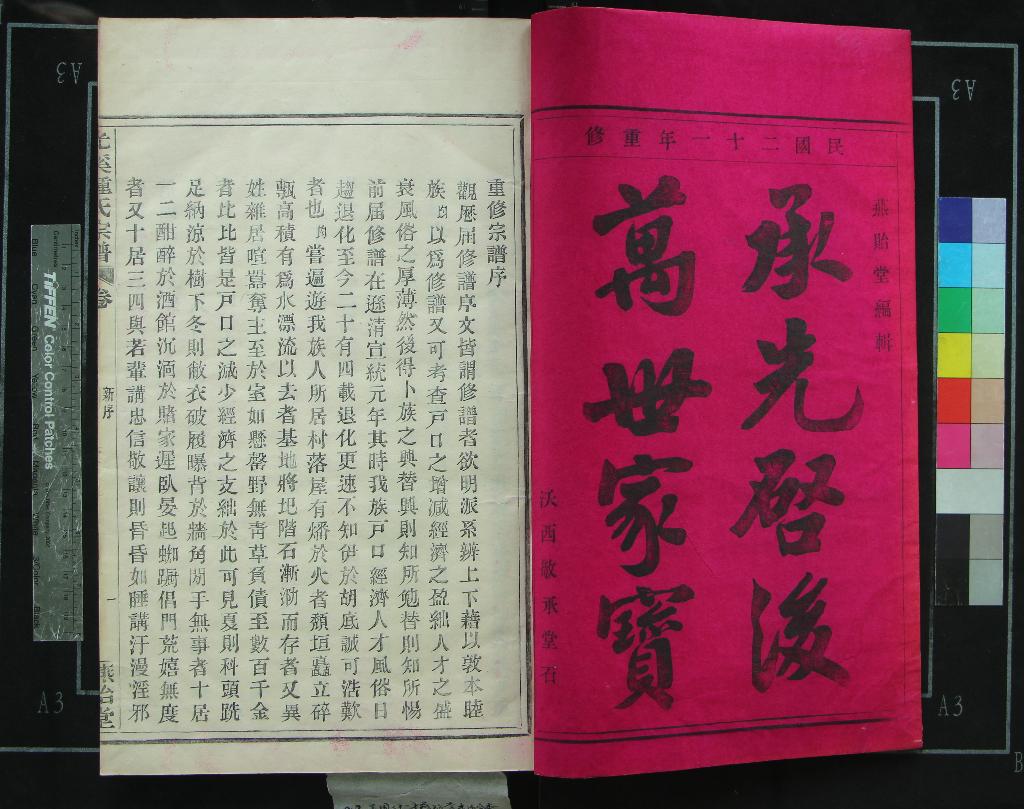 民國二十一年重修
燕貽堂編輯
承先啓後
萬世家寶
沃西敬承堂石
重修宗譜序
觀歷屆修譜序文皆謂修譜者欲明派系辨上下藉以敦本睦
族以為修譜又可考查戶口之增減經濟之盈絀人才之盛
衰風俗之厚薄然後得卜族之興替興則知所勉替則知所惕
前屆修譜在遜清宣統元年其時我族戶口經濟人才風俗日
趨退化至今二十有四載退化更速不知伊於胡底誠可浩歎
者也嘗遍遊我族人所居村落屋有燔於火者頹垣矗立碎
甎高積有為水漂流以去者基地將圯階石漸泐而存者又異
姓雜居喧囂奪主至於室如懸罄野無靑草負債至數百千金
者比比皆是戶口之減少經濟之支絀於此可見夏則科頭跣
足納涼於樹下冬則敝衣破履曝背於牆角閒手無事者十居
一二酣醉於酒館沉湎於賭家遲臥晏起踟躕倡門荒嬉無度
者又十居三四與若輩講忠信敬讓則昏昏如睡講汙漫淫邪
氏宗譜
卷
新序
一
燕詒堂
A3
A3
A3
A3
TIFFEN Color Control Patches